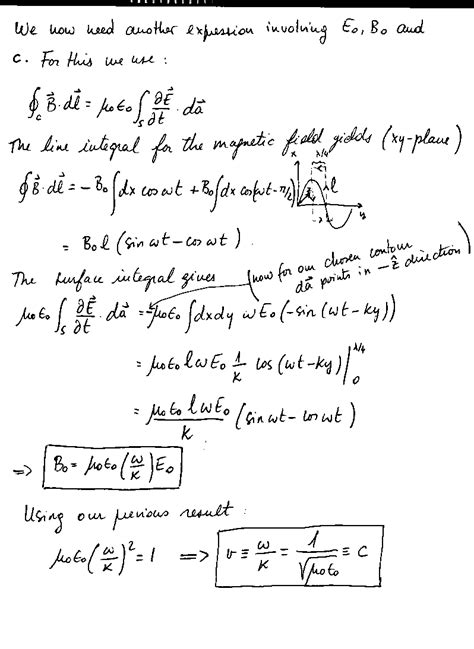 We now need another expression involving E₀, B₀ and
c. For this we use :
∮_c B⃗·dl⃗ = μ₀ε₀ ∫_S ∂E⃗/∂t · da⃗
The line integral for the magnetic field yields (xy-plane)
∮B⃗·dl⃗ = -B₀∫dx cos ωt + B₀∫dx cos(ωt-π/2)
x λ/4 l y
= B₀l (sin ωt - cos ωt).
The surface integral gives (now for our chosen contour
da⃗ points in -ẑ direction)
μ₀ε₀ ∫_S ∂E⃗/∂t · da⃗ = -μ₀ε₀ ∫dxdy ω E₀ (-sin (ωt - ky))
= μ₀ε₀ l ω E₀ 1/k cos (ωt - ky) |₀^{λ/4}
= μ₀ε₀ l ω E₀/k (sin ωt - cos ωt)
=> B₀ = μ₀ε₀ (ω/k) E₀
Using our previous result :
μ₀ε₀ (ω/k)² = 1 => v ≡ ω/k = 1/√μ₀ε₀ ≡ c